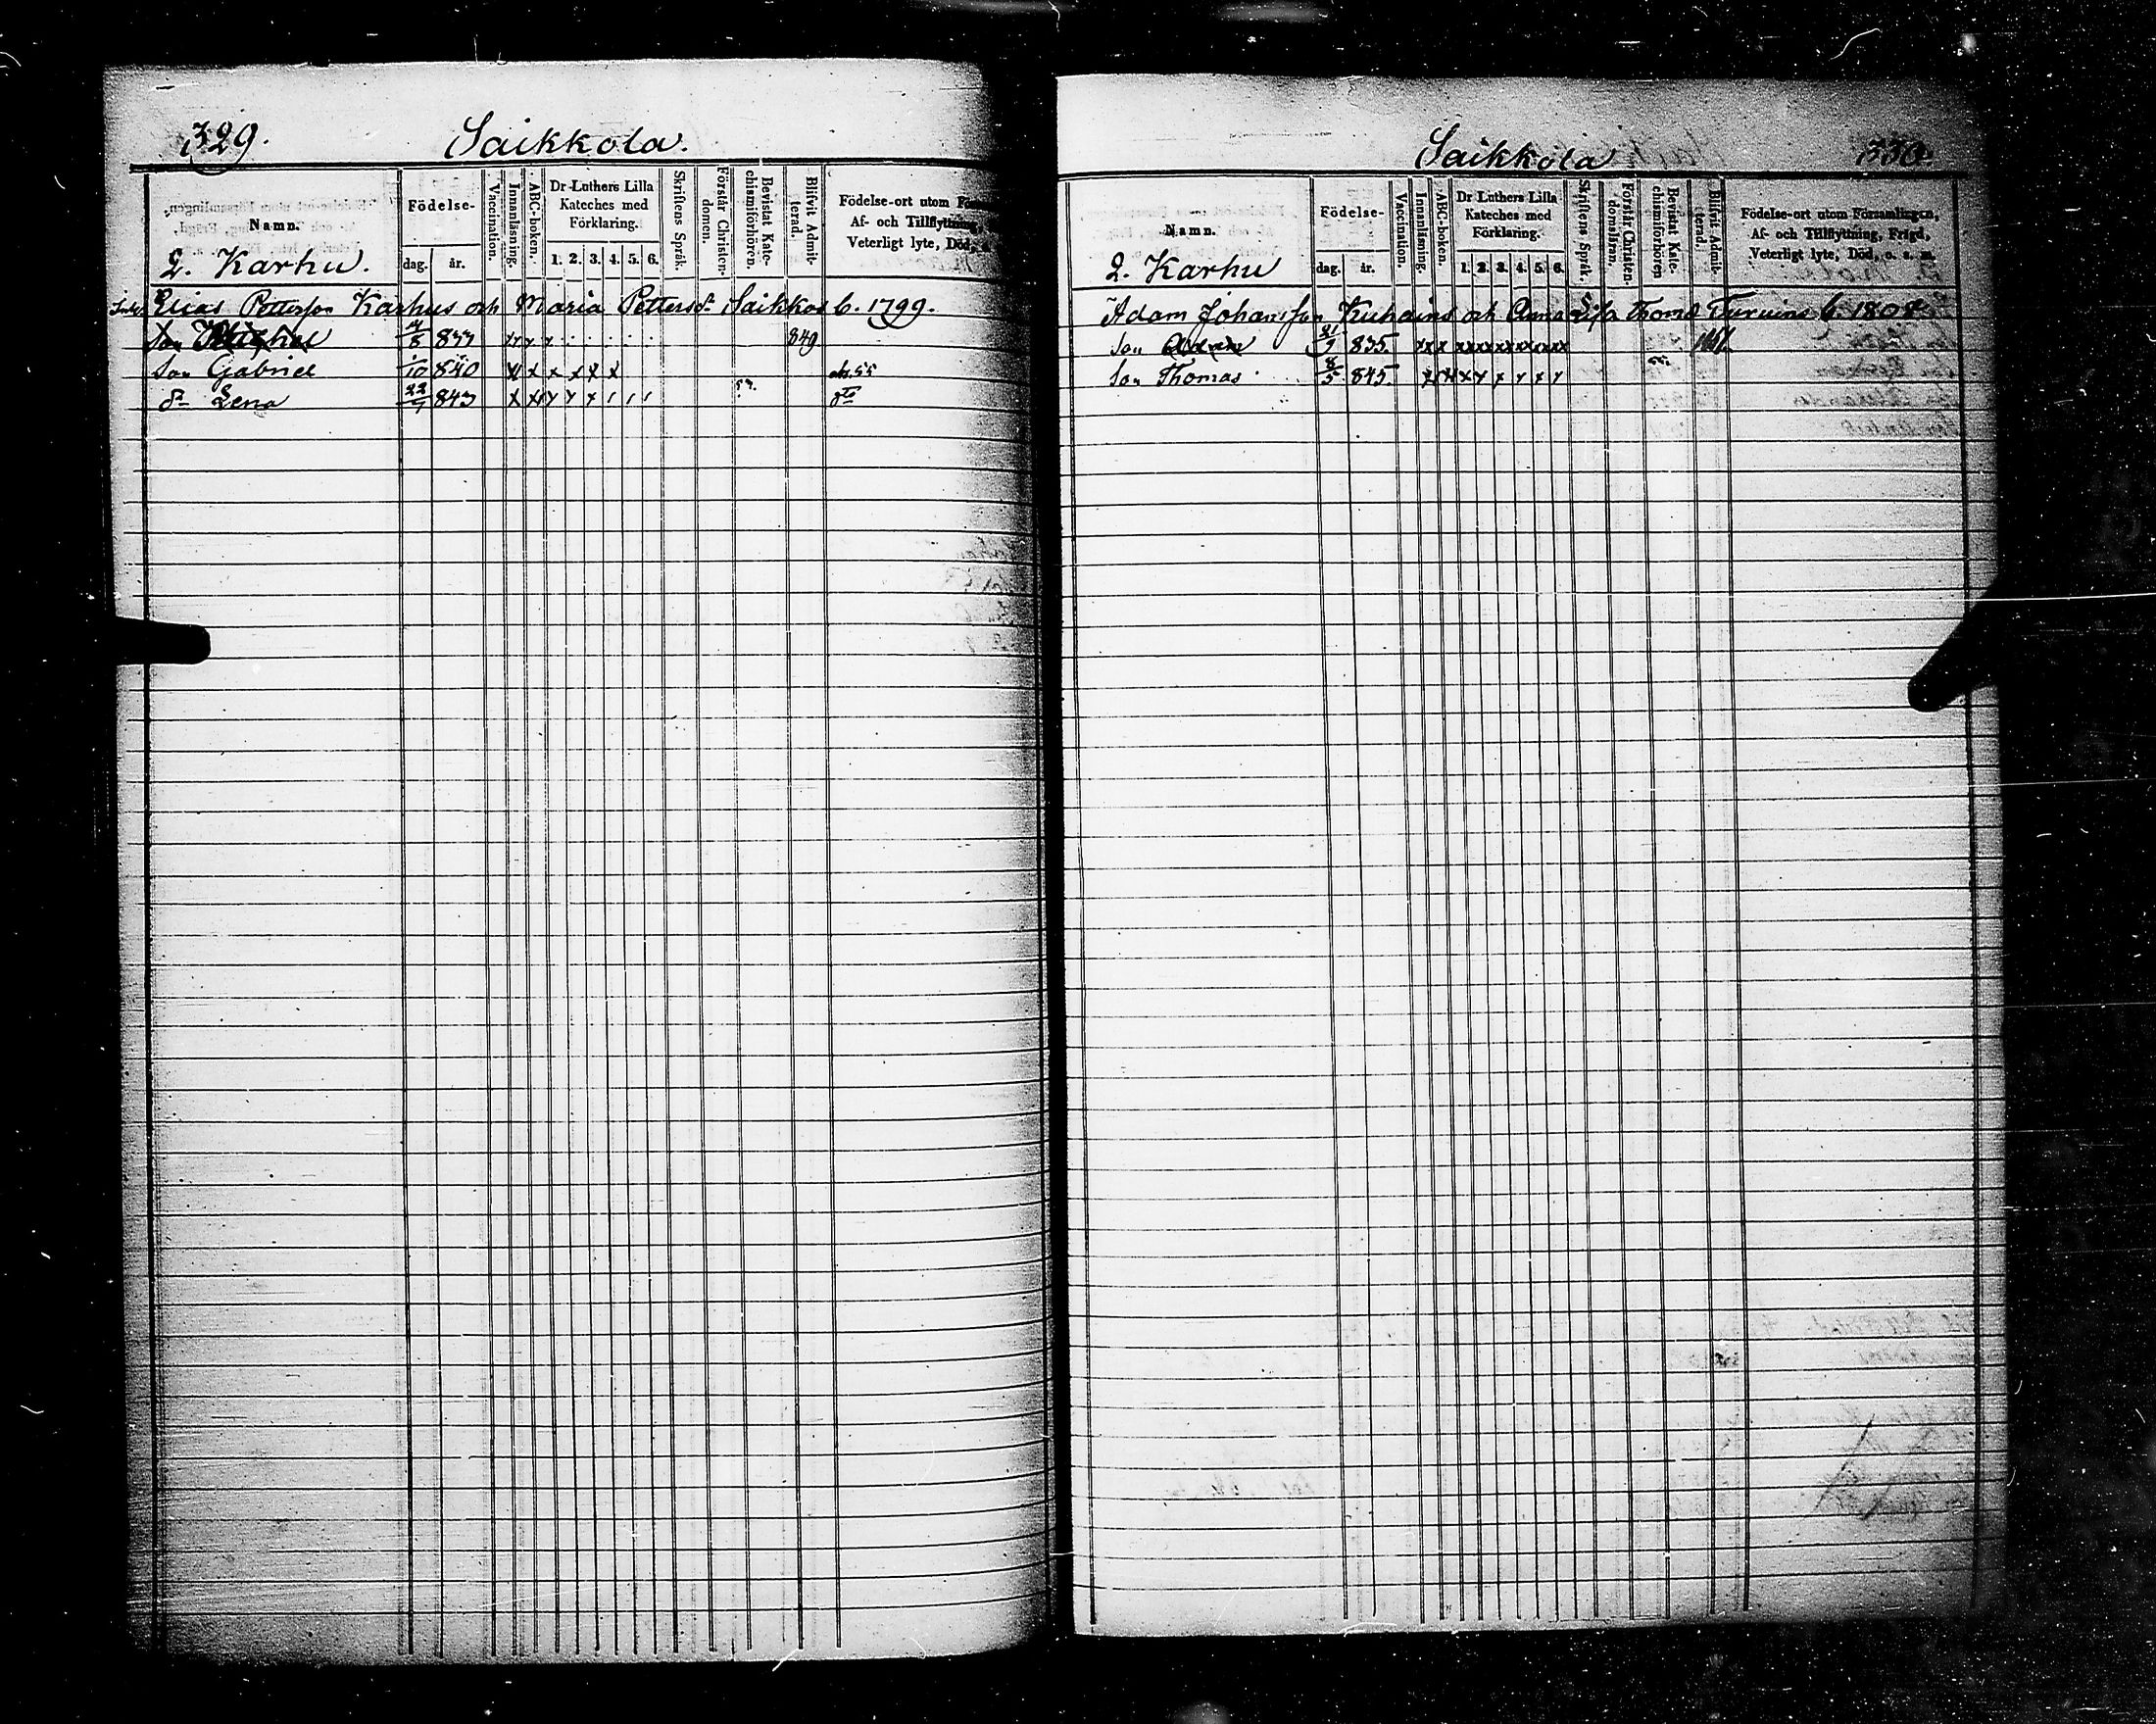 329.
Saikkola.
Namn.
Födelse-
dag.
år.
Vaccination.
Innanläsning.
ABC-boken.
Dr Luthers Lilla
Kateches med
Förklaring.
1. 2. 3. 4. 5. 6.
Skriftens Språk.
Förstår Christen-
domen.
Bevistat Kate-
chismiförhören.
Blifvit Admit-
terad.
Födelse-ort utom
Af- och Tillflyttning,
Veterligt lyte, Död,
2. Karhu.
Elias Pettersson Karhus och Maria Pettersdr Saikkos b. 1799.
Son Michel 4/8 837 849
Son Gabriel 1/10 840 55
dr Lena 22/7 843
Saikkola
330.
Namn.
Födelse-
dag.
år.
Vaccination.
Innanläsning.
ABC-boken.
Dr Luthers Lilla
Kateches med
Förklaring.
1. 2. 3. 4. 5. 6.
Skriftens Språk.
Förstår Christen-
domsläran.
Bevistat Kate-
chismiförhören
Blifvit Admit-
terad.
Födelse-ort utom Församlingen,
Af- och Tillflyttning, Frigd,
Veterligt lyte, Död, o. s. m.
2. Karhu
Adam Johansson och Anna Lisa Thomæ b. 1808
Son Adam 21/9 835.
Son Thomas 8/5 845.